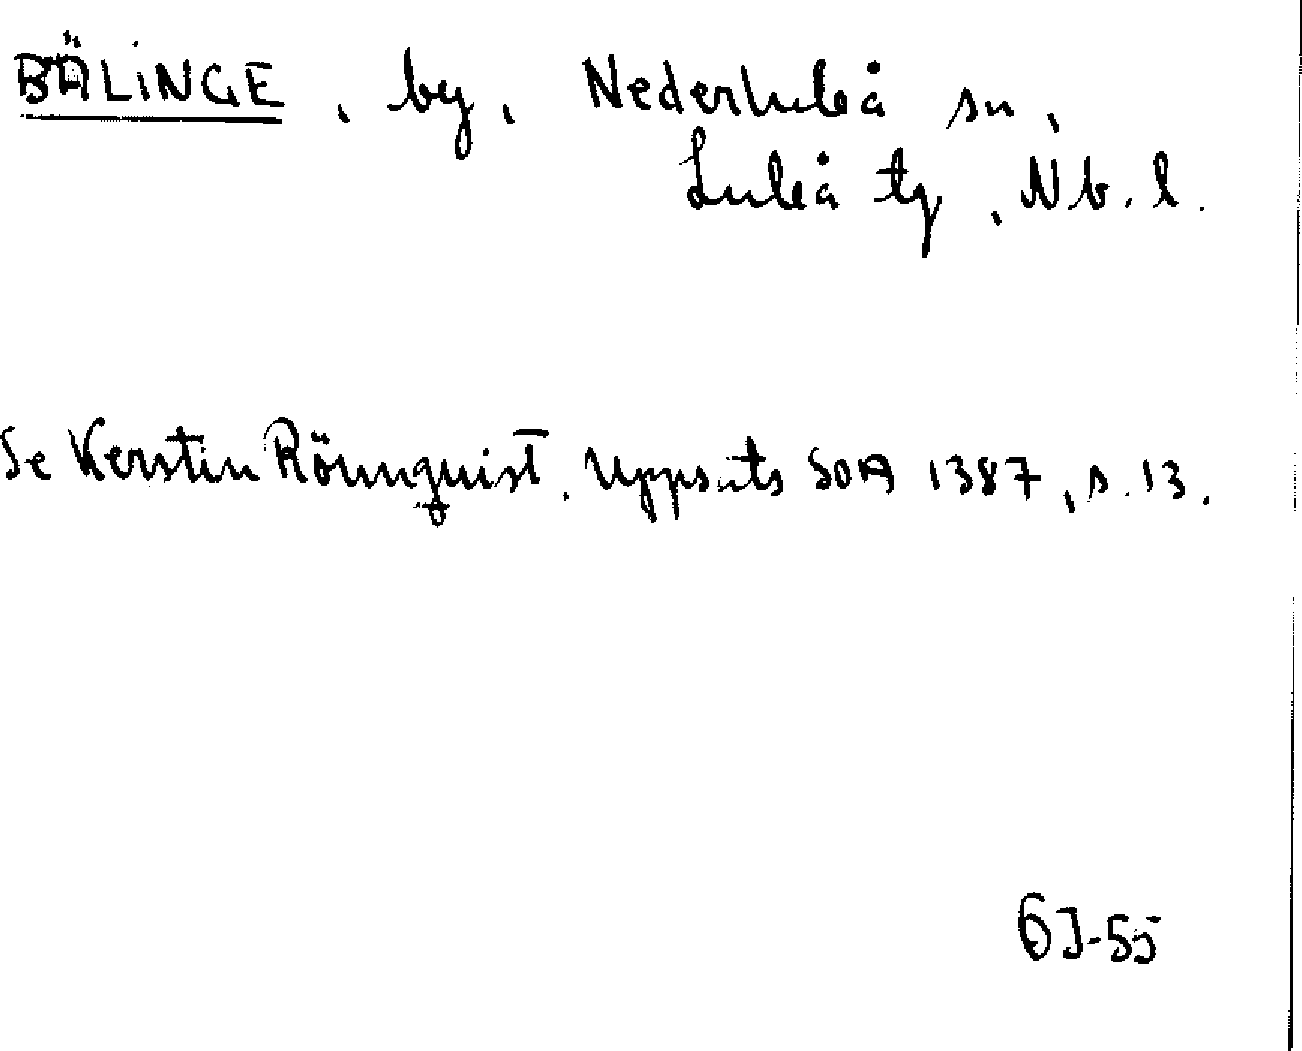 BÄLINGE, by, Nederluleå sn,
Luleå tg, Nb. l.
Se Kerstin Rönnquist. Uppsats SOA 1387, s. 13.
GJ-55